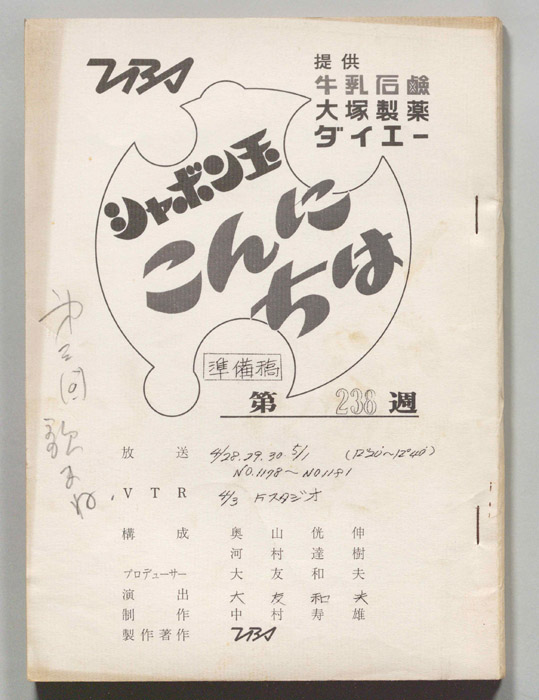 TBS
提供
牛乳石鹸
大塚製薬
ダイエー
シャボン玉
こんに
ちは
準備稿
第 238 週
放送 4/28.29.30 5/1 (12°20'~12°40')
NO.1178~NO1181
VTR 4/3 Fスタジオ
構成 奥山侊伸
河村達樹
プロデューサー 大友和夫
演出 大友和夫
制作 中村寿雄
製作著作 TBS
第三回